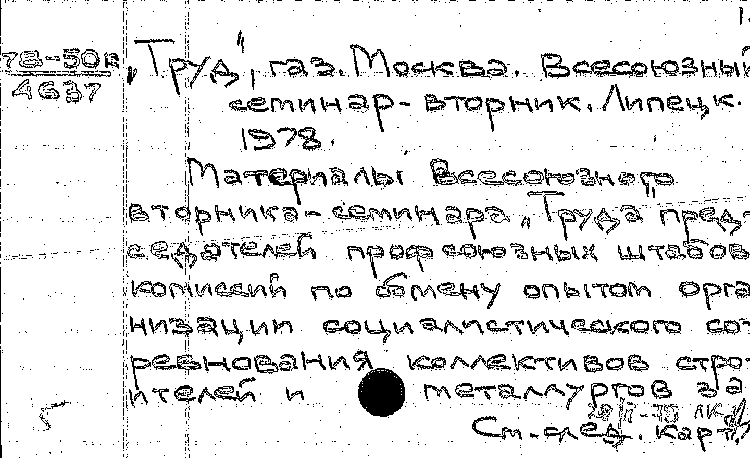 78-50в
4637
„Труд", газ. Москва. Всесоюзный
семинар-вторник. Липецк.
1978.
Материалы Всесоюзного
вторника-семинара „Труда" пред-
седателей профсоюзных штабов
комиссий по обмену опытом орга-
низации социалистического сот-
ревнования коллективов строи-
ителей и металлургов за
См. след. карт.
5